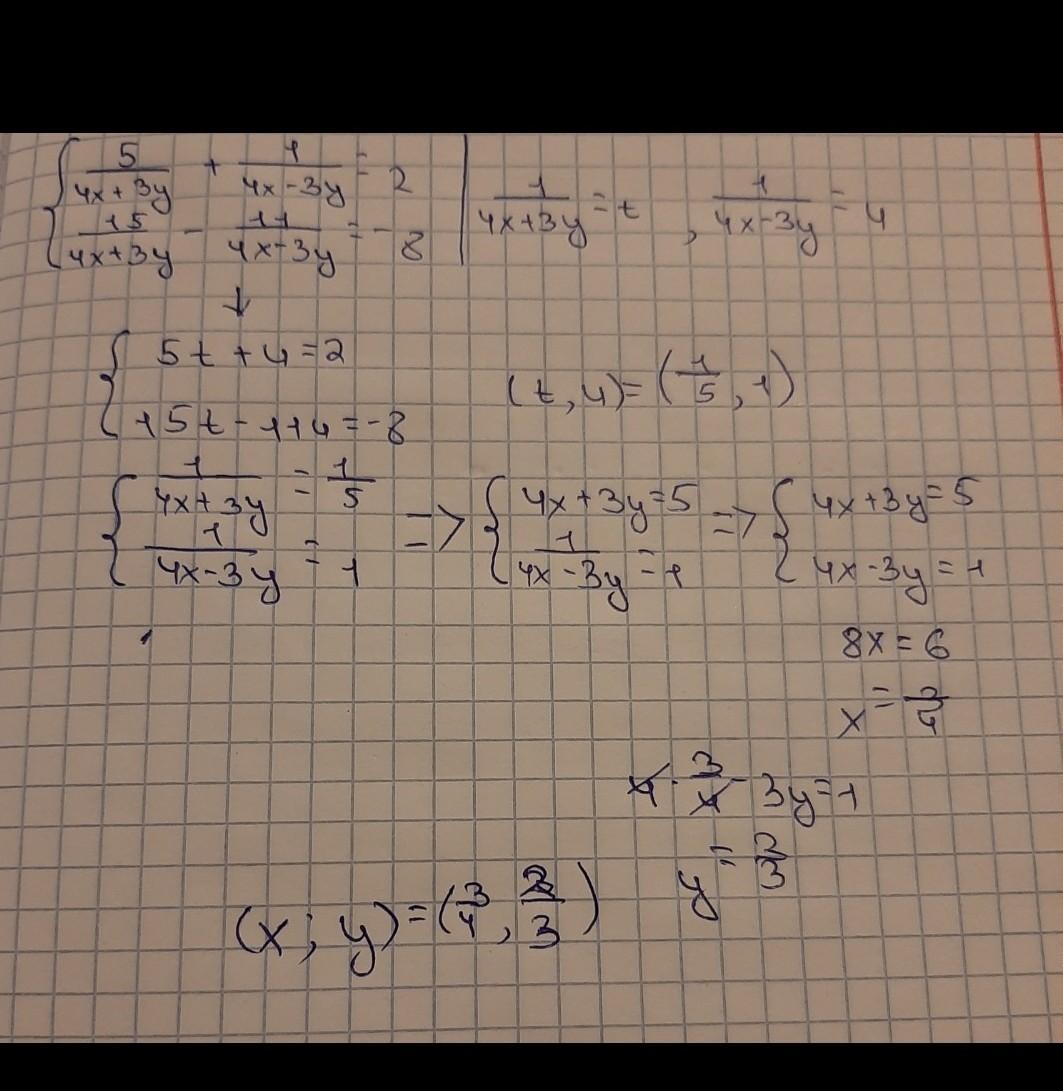 { 5/(4x+3y) + 1/(4x-3y) = 2 | 1/(4x+3y) = t , 1/(4x-3y) = u
{ 15/(4x+3y) - 11/(4x-3y) = -8
↓
{ 5t + u = 2
(t, u) = (1/5, 1)
{ 15t - 11u = -8
{ 1/(4x+3y) = 1/5 => { 4x+3y=5 => { 4x+3y=5
{ 1/(4x-3y) = 1 { 1/(4x-3y) = 1 { 4x-3y=1
8x = 6
x = 3/4
4 · 3/4 - 3y = 1
y = 2/3
(x; y) = (3/4, 2/3)